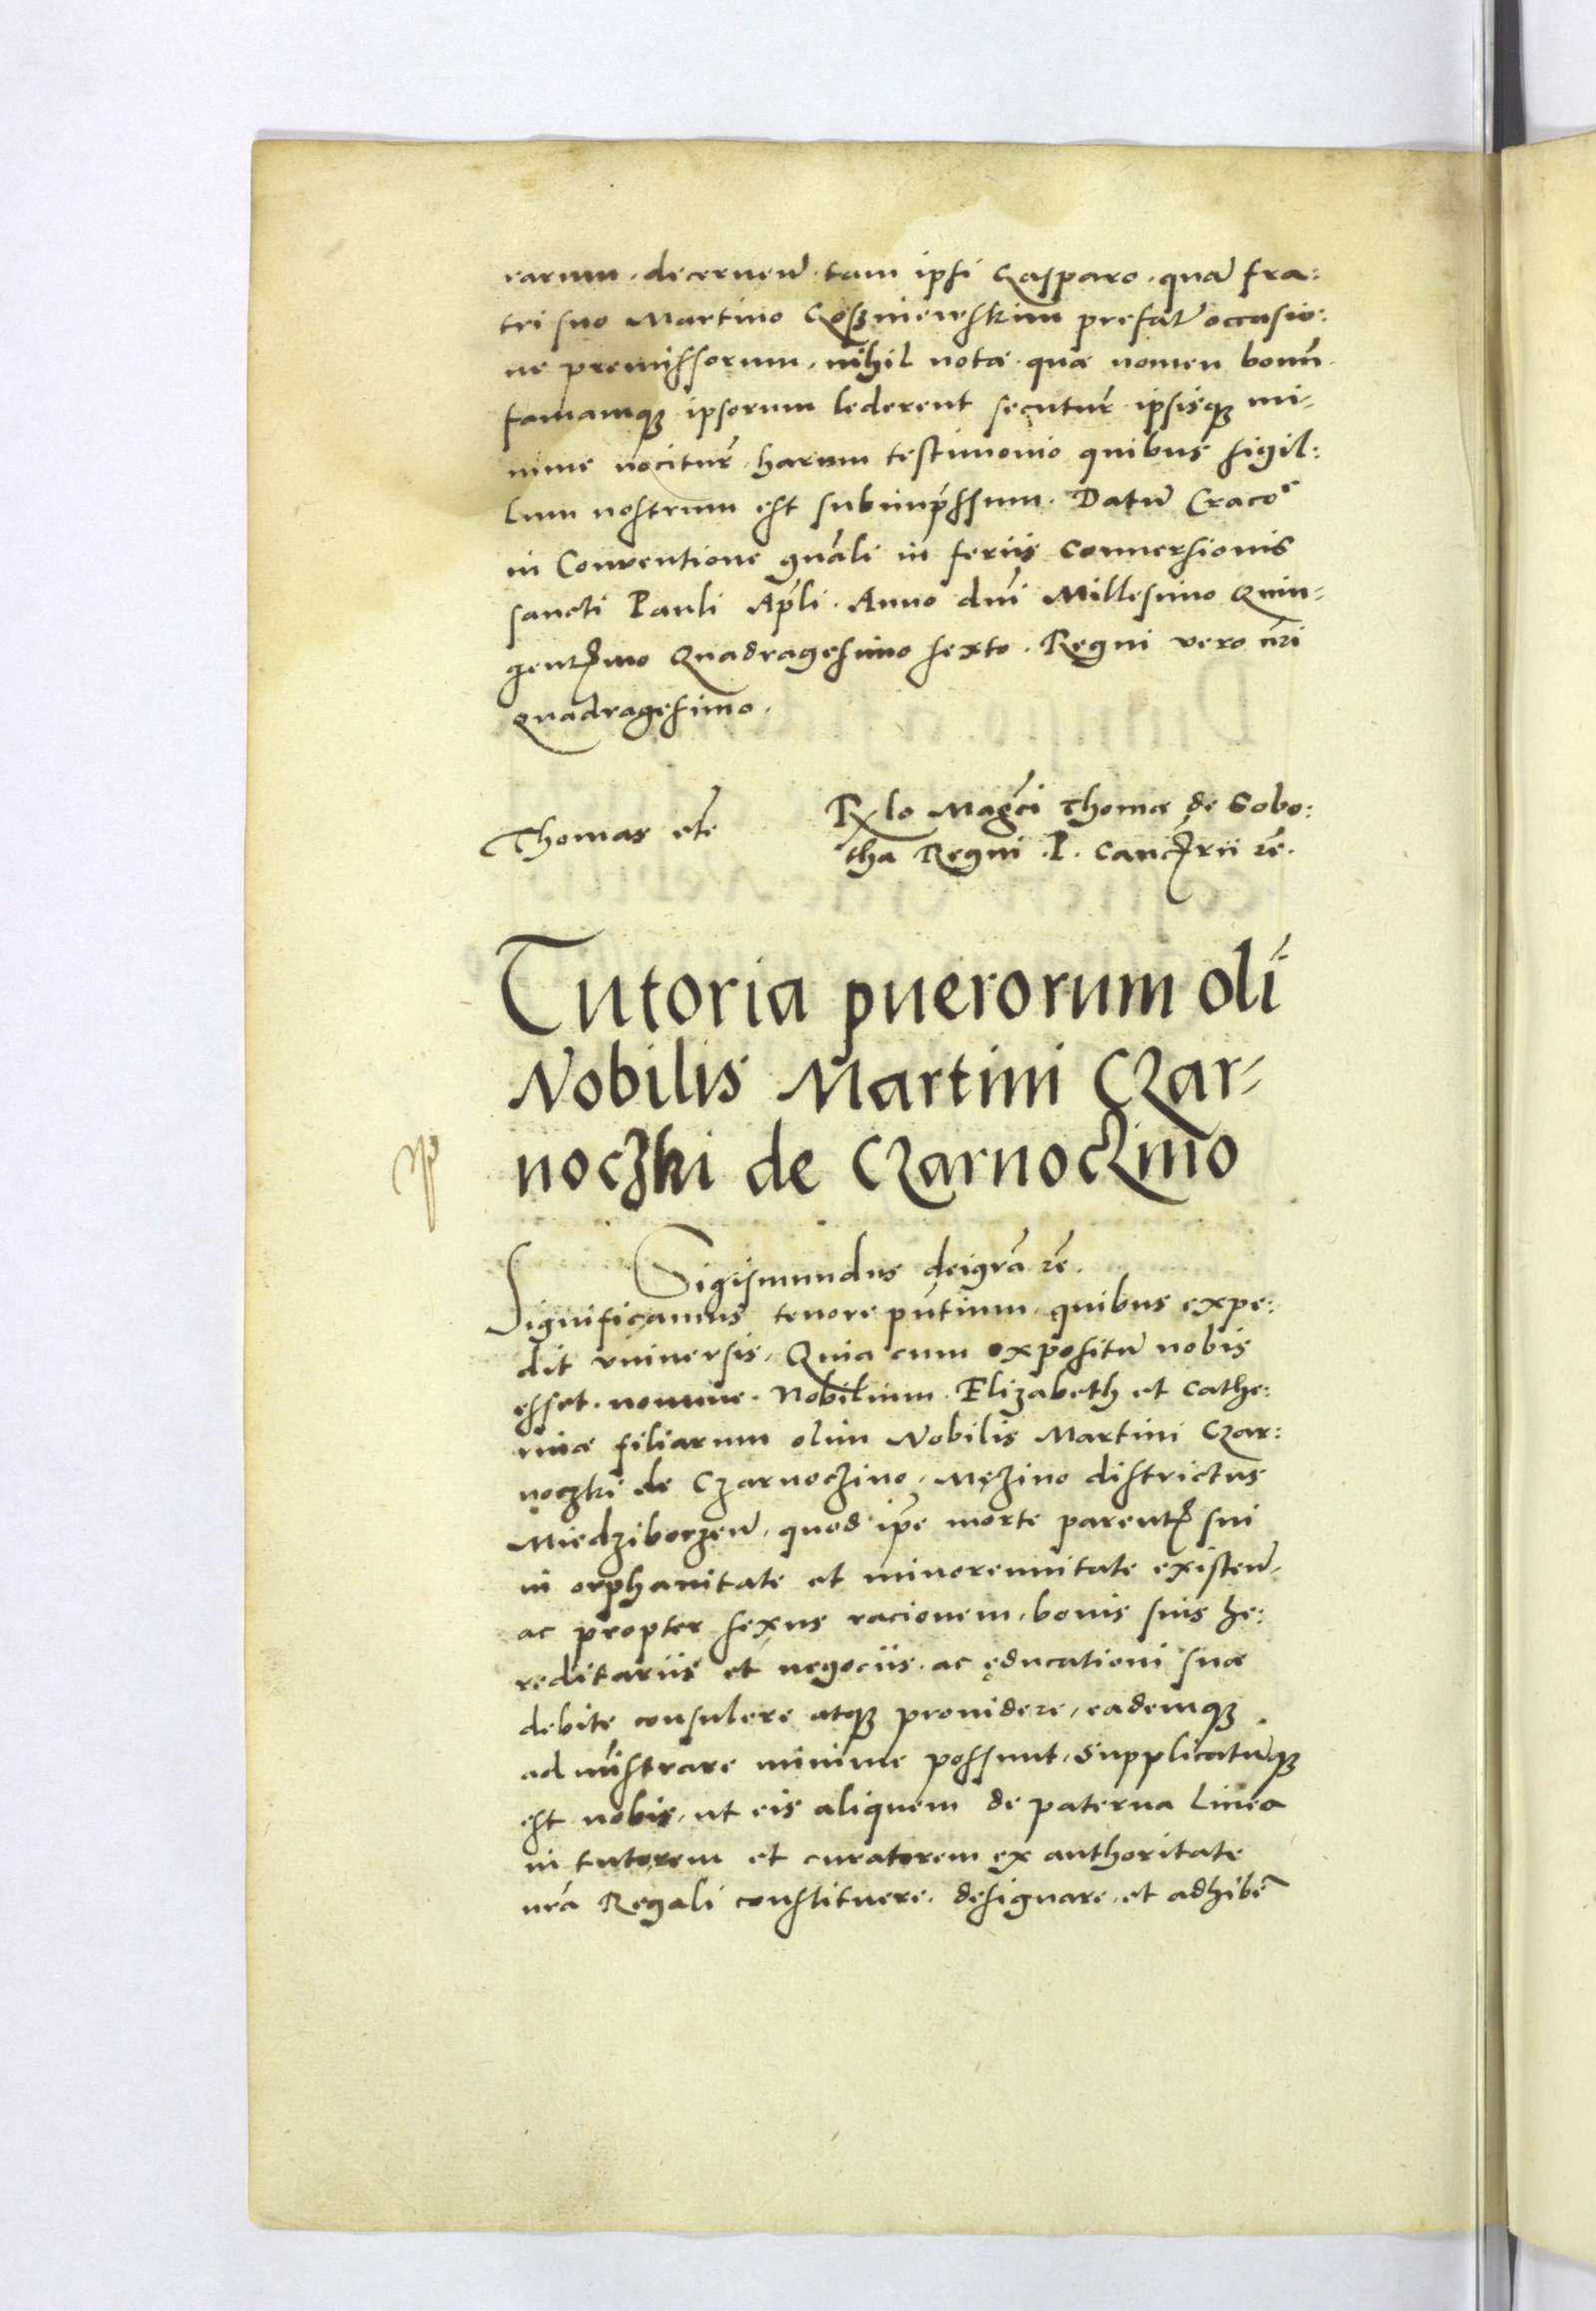 rarum. decernen̄. tam ipsi Casparo. quā fra:
tri suo Martino Coszniewskim prefat̄ occasio:
ne premissorum, nihil notæ. quæ nomen bonū
famamqȝ ipsorum lederent secutur̄ ipsisqȝ mi-
nime nocitur̄. harum testimonio quibus sigil:
lum nostrum est subimp̄ssum. Datū Craco^e
in Conventione gn̄ali in feriis Conversionis
sancti Pauli Apl̄i. Anno dn̄i Millesimo Quin-
gentꝭmo Quadragesimo sexto. Regni vero n̄ri
Quadragesimo.
Thomas etc̄
Rҳlo Magc̄i Thomæ de Sobo:
tha Regni .P. Cancꝭrii rc̄.
Tutoria puerorum olī
Nobilis Martini Czar-
noczki de Czarnoczino
Sigismundus dei gr̄a rc̄.
Significamus tenore pn̄tium. quibus expe:
dit vniversis, Quia cum expositū nobis
esset. nomine. Nobilium. Elizabeth et Cathe:
rinæ filiarum olim Nobilis Martini Czar:
noczki de Czarnoczino, Męzino districtus
Miedziborzen̄, quod ip̄e morte parentꝭ sui
in orphanitate et minorennitate existen̄,
ac propter sexus racionem, bonis suis he:
reditariis et negociis. ac ęducationi suæ
debite consulere atqȝ providere, eademqȝ
admīstrare minime possunt, Supplicatūqȝ
est nobis, ut eis aliquem de paterna linea
in tutorem et curatorem ex authoritate
nr̄a Regali constituere. designare. et adhibē